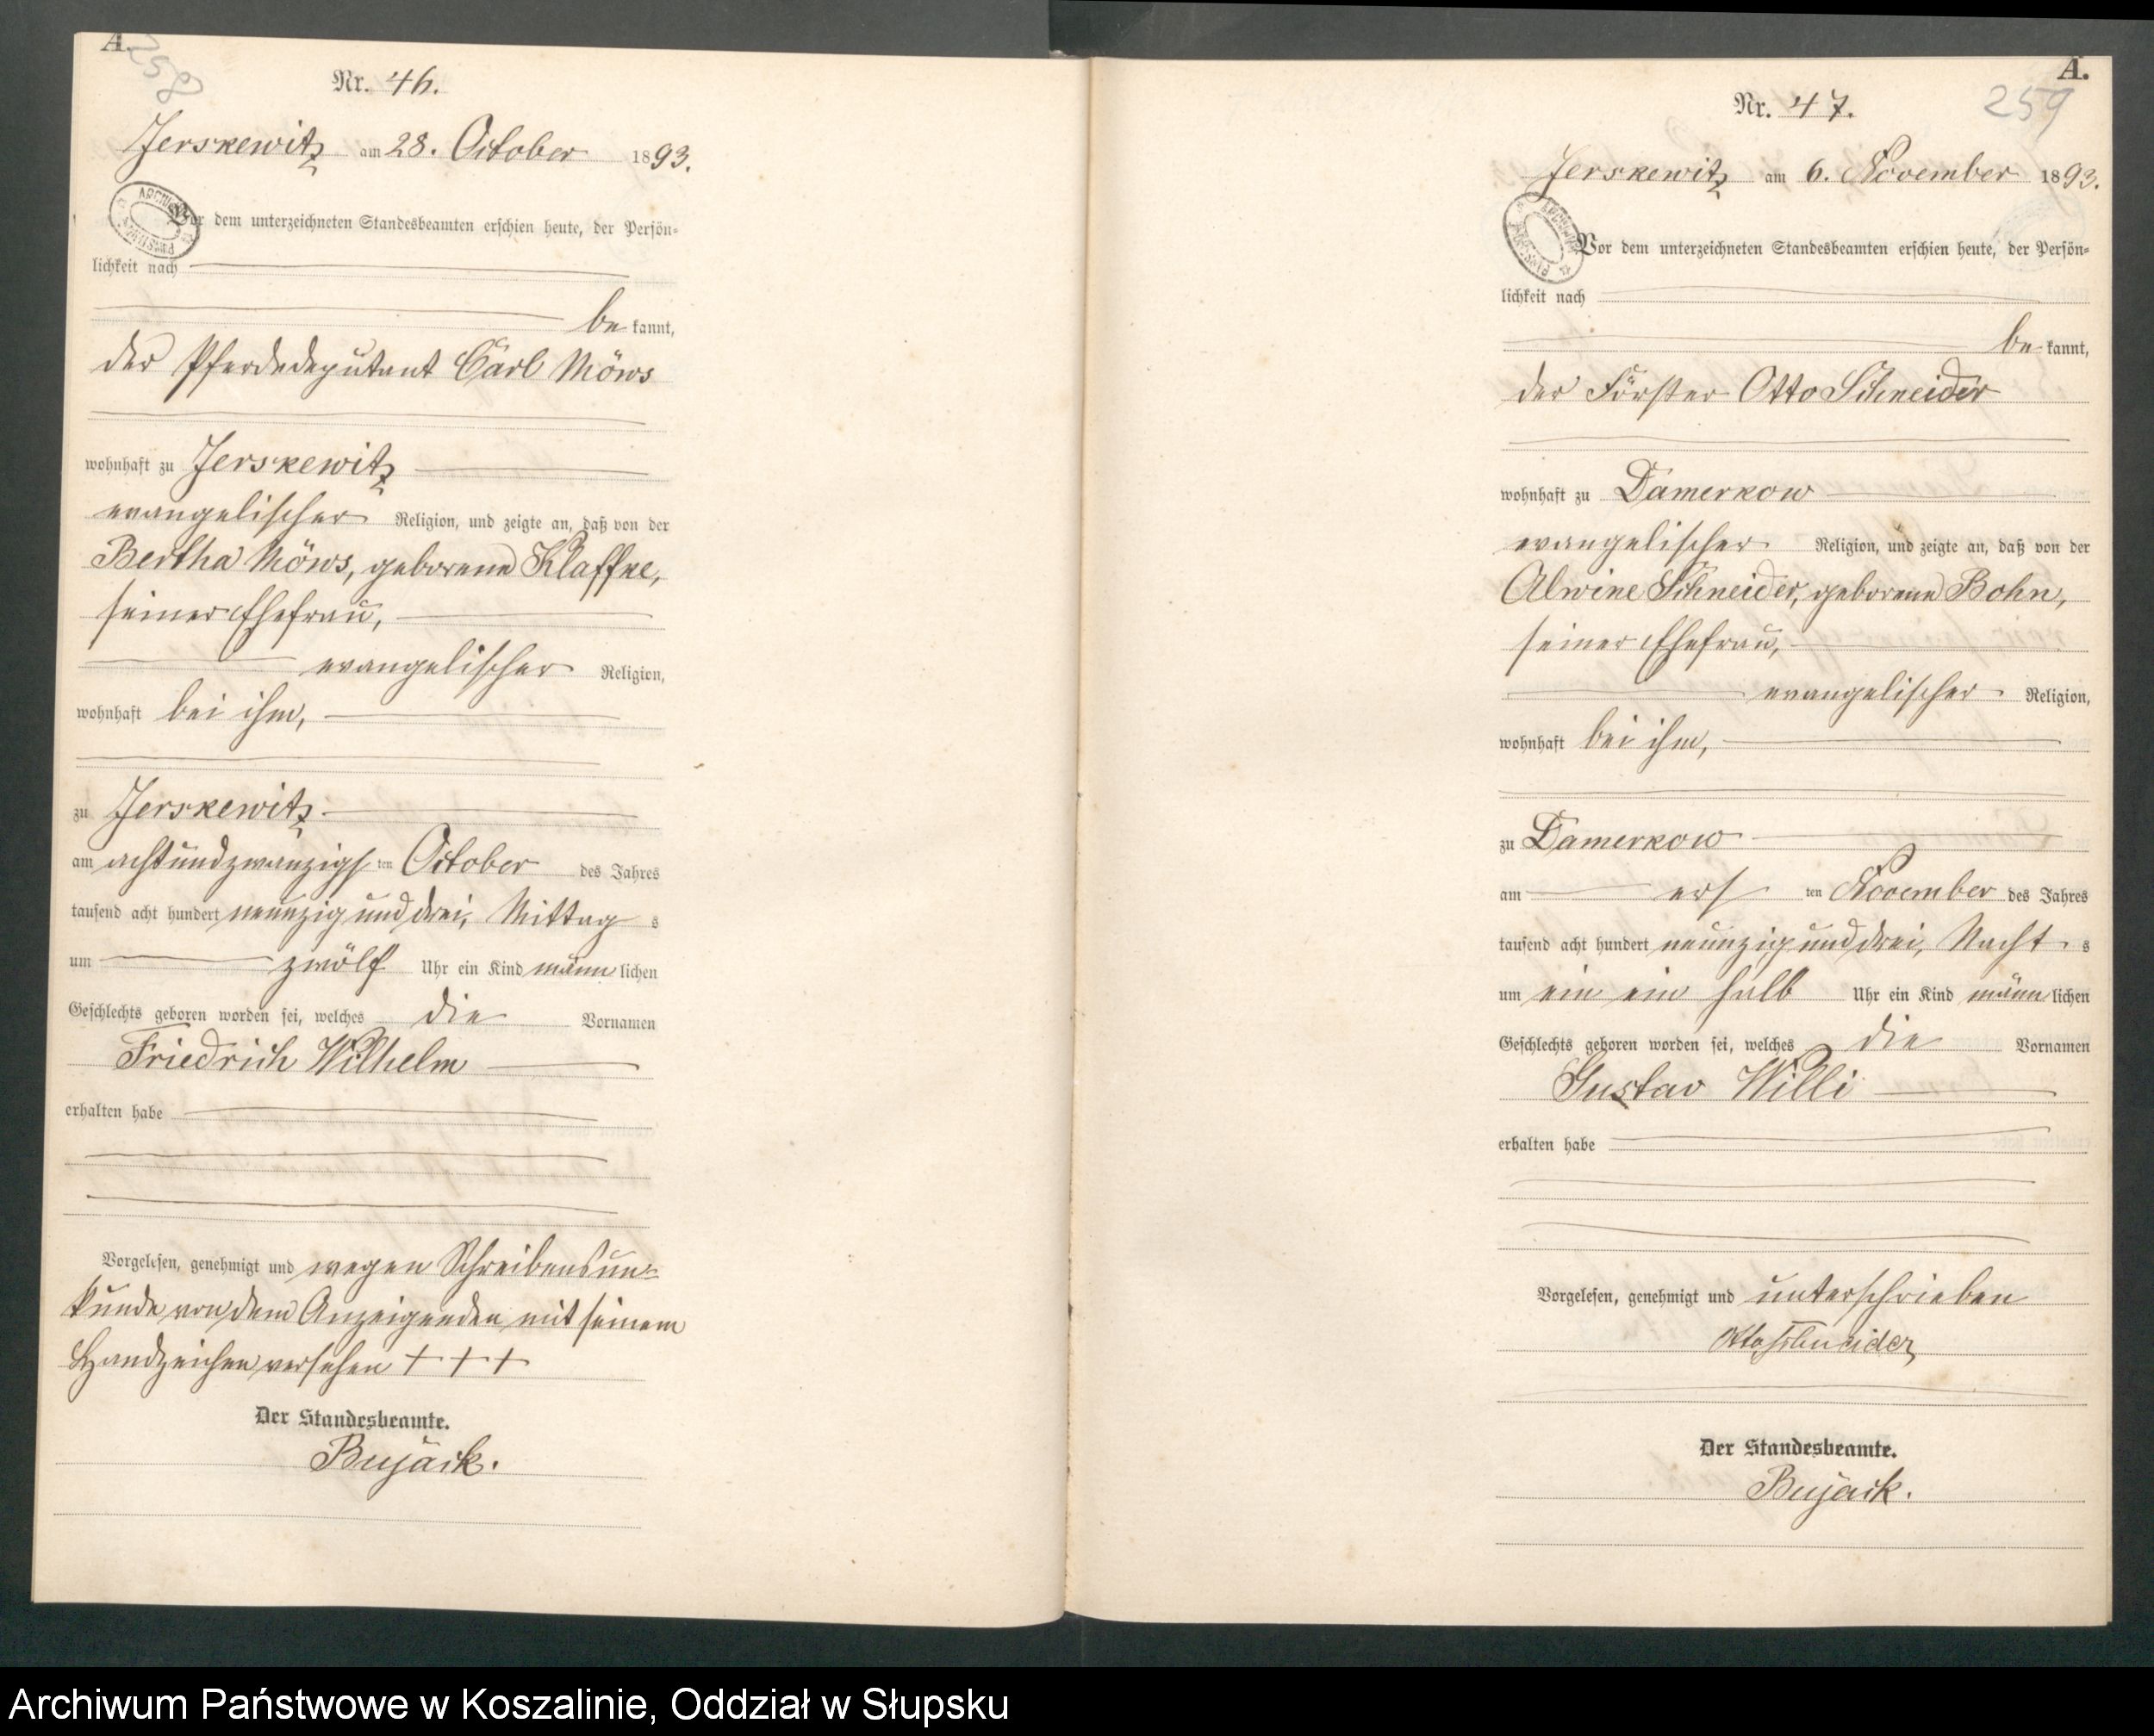 A.
258
Nr. 46.
Jerskewitz am 28. October 1893.
Vor dem unterzeichneten Standesbeamten erschien heute, der Persön=
lichkeit nach
be kannt,
der Pferdedeputant Carl Möws
wohnhaft zu Jerskewitz
evangelischer Religion, und zeigte an, daß von der
Bertha Möws, geborene Klaffke,
seiner Ehefrau,
evangelischer Religion,
wohnhaft bei ihm,
zu Jerskewitz
am achtundzwanzigs ten October des Jahres
tausend acht hundert neunzig und drei, Mittag s
um zwölf Uhr ein Kind männ lichen
Geschlechts geboren worden sei, welches die Vornamen
Friedrich Wilhelm
erhalten habe
Vorgelesen, genehmigt und wegen Schreibensun=
kunde von dem Anzeigenden mit seinem
Handzeichen versehen + + +
Der Standesbeamte.
Bujack.
A.
259
Nr. 47.
Jerskewitz am 6. November 1893.
Vor dem unterzeichneten Standesbeamten erschien heute, der Persön=
lichkeit nach
be kannt,
der Förster Otto Schneider
wohnhaft zu Damerkow
evangelischer Religion, und zeigte an, daß von der
Alwine Schneider, geborene Bohn,
seiner Ehefrau,
evangelischer Religion,
wohnhaft bei ihm,
zu Damerkow
am ers ten November des Jahres
tausend acht hundert neunzig und drei, Nacht s
um ein ein halb Uhr ein Kind männ lichen
Geschlechts geboren worden sei, welches die Vornamen
Gustav Willi
erhalten habe
Vorgelesen, genehmigt und unterschrieben
Otto Schneider
Der Standesbeamte.
Bujack.
Archiwum Państwowe w Koszalinie, Oddział w Słupsku